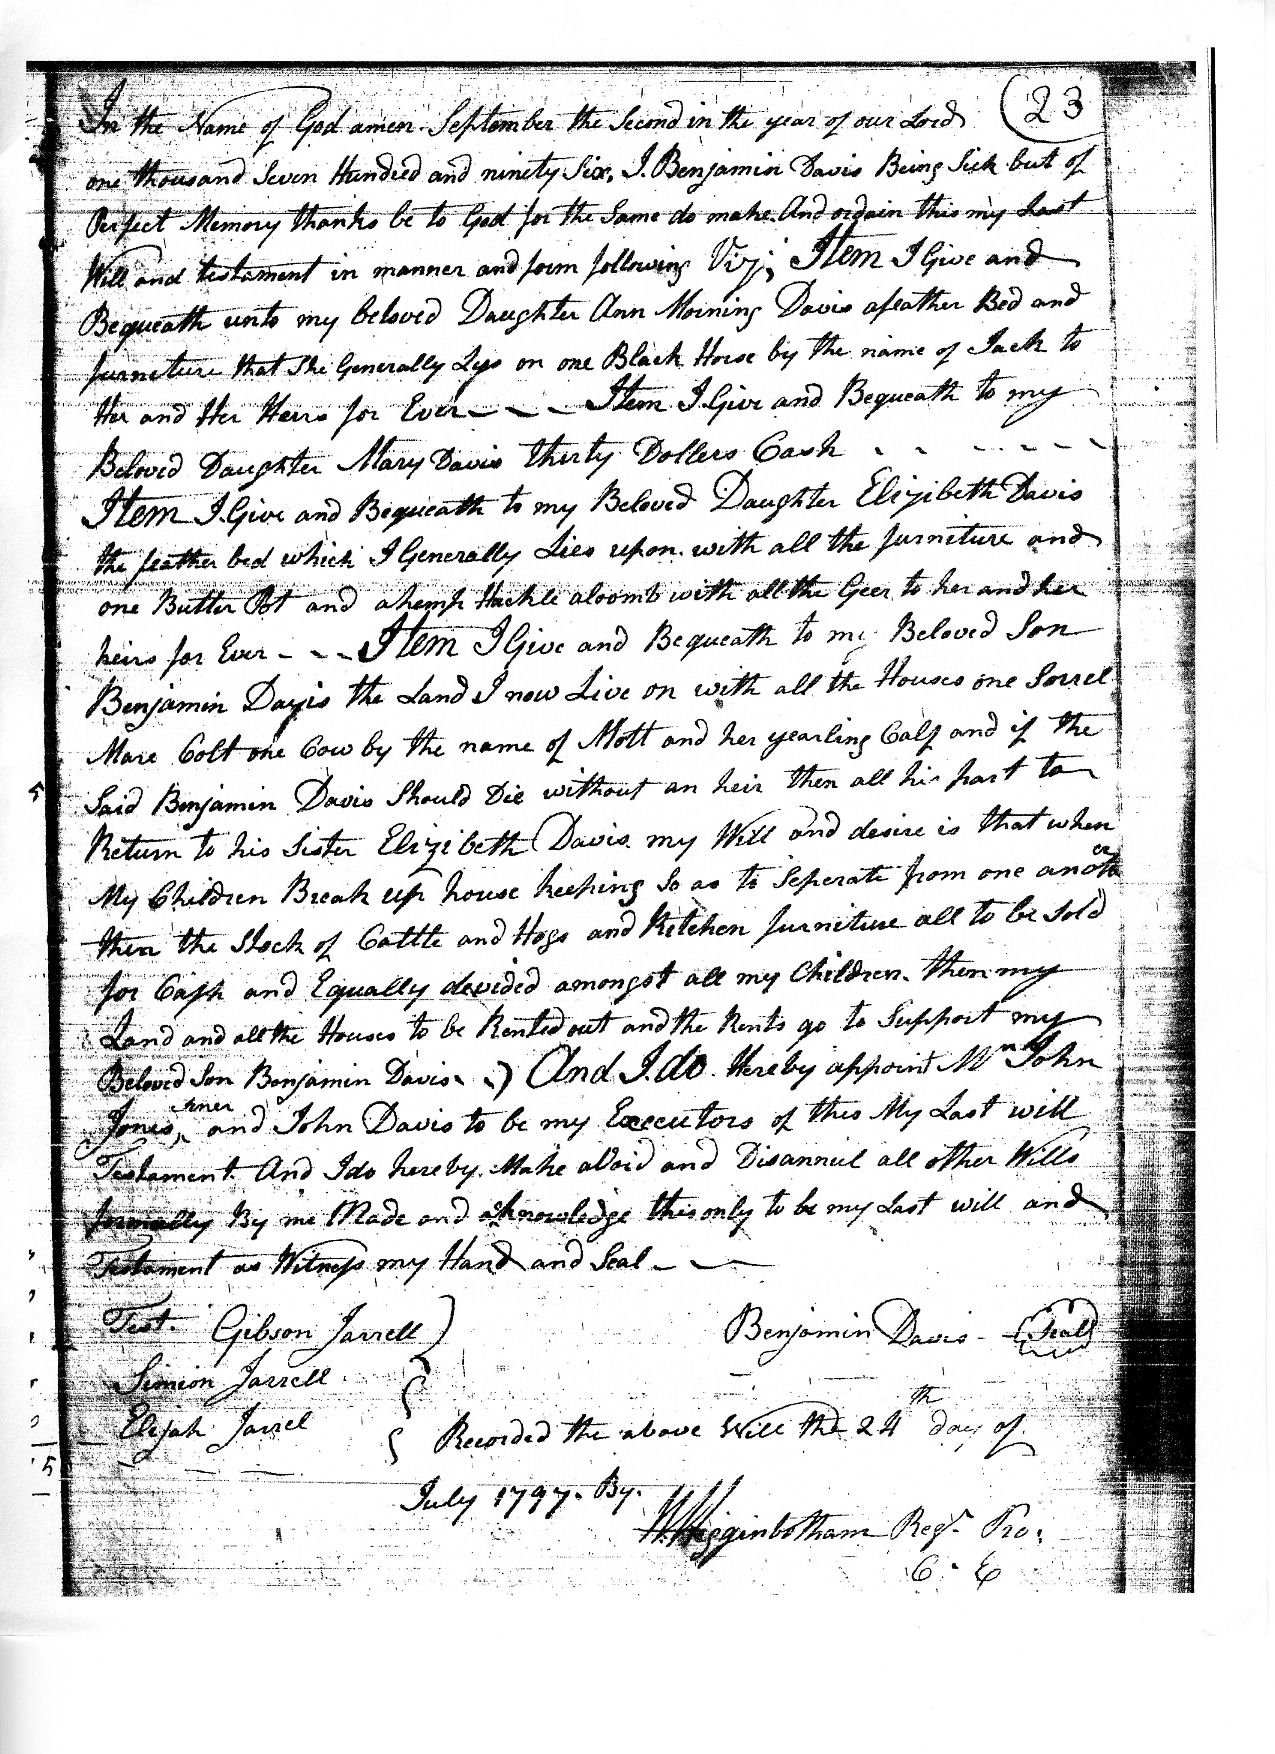 (23
In the Name of God amen. September the Second in the year of our Lord
one thousand Seven Hundred and ninety Six, I. Benjamin Davis Being Sick but of
Perfect Memory thanks be to God for the Same do make And ordain this my Last
Will and testament in manner and form following Viz; Item I Give and
Bequeath unto my beloved Daughter Ann Morning Davis afeather Bed and
furneture that She Generally Lys on one Black Horse by the name of Jack to
Her and Her Heirs for Ever - - - Item I Give and Bequeath to my
Beloved Daughter Mary Davis thirty Dollers Cash - - - - - -
Item I Give and Bequeath to my Beloved Daughter Elizibeth Davis
the feather bed which I Generally Lies upon with all the furniture and
one Butter Pot and ahemp Hackle aloomb with all the Geer to her and her
heirs for Ever - - - Item I Give and Bequeath to my Beloved Son
Benjamin Davis the Land I now Live on with all the Houses one Sorrel
Mare Colt one Cow by the name of Mott and her yearling Calf and if the
Said Benjamin Davis Should Die without an heir then all his part to
Return to his Sister Elizibeth Davis my Will and desire is that when
My Children Break up house keeping So as to Seperate from one another
then the Stock of Cattle and Hogs and Kitchen furniture all to be Sold
for Cash and Equally devided amongst all my Children. then my
Land and all the Houses to be Rented out and the Rents go to Support my
Beloved Son Benjamin Davis - -) And I do Hereby appoint John
Jones, and John Davis to be my Executors of this My Last will
Testament. And I do hereby Make aVoid and Disannul all other Wills
formally By me Made and acknowledge this only to be my Last will and
Testament as Witness my Hand and Seal - - -
Test. Gibson Jarrell )
Benjamin Davis - (Seal)
Simion Jarrell
Elijah Jarrel
Recorded the above Will the 24th day of
July 1797. By.
W. Higginbotham Regr. Pro.
C. E